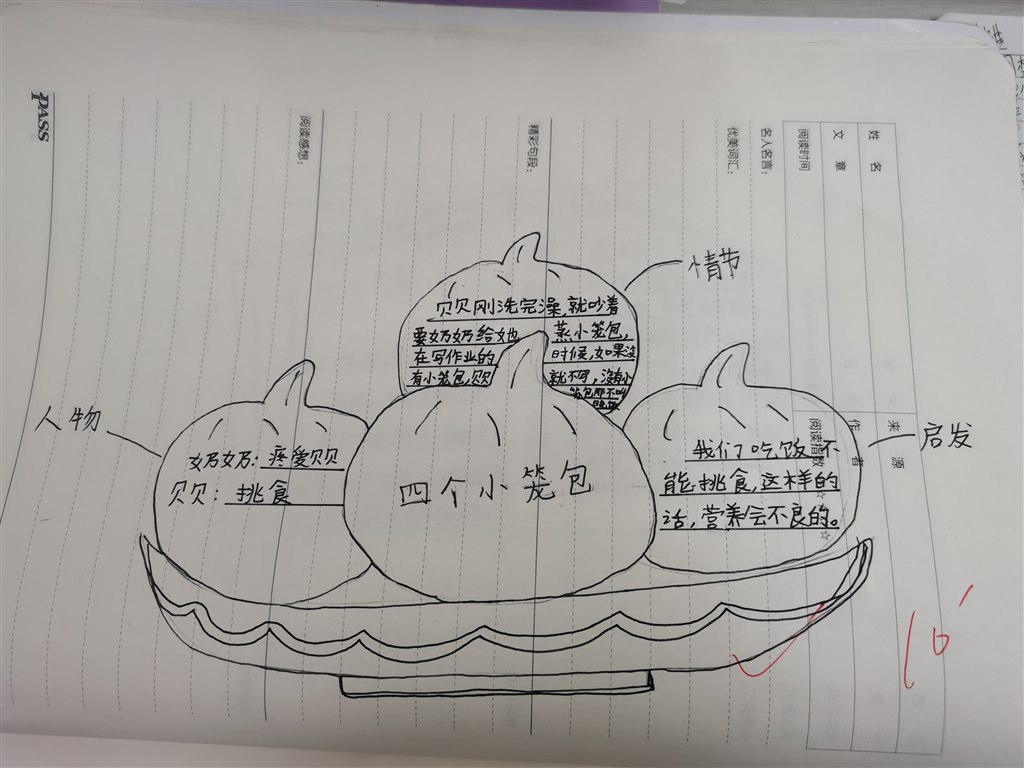 情节
贝贝刚洗完澡,就吵着
要奶奶给她 蒸小笼包,
在写作业的 时候,如果没
有小笼包,贝贝 就不写,没有小
笼包那不叫
晚饭
人物
奶奶: 疼爱贝贝
贝贝: 挑食
四个小笼包
启发
我们吃饭不
能挑食,这样的
话,营养会不良的。
姓 名
文 章
阅读时间
名人名言:
优美词汇:
精彩句段:
阅读感想:
来 源
作 者
阅读指数
PASS
10